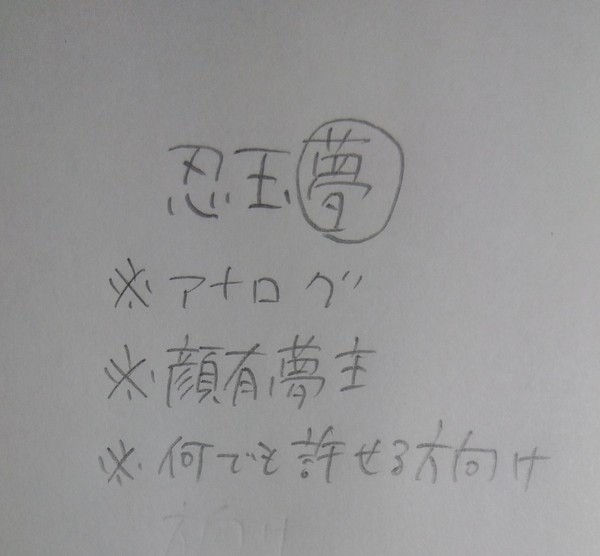 忍玉夢
※アナログ
※顔有夢主
※何でも許せる方向け